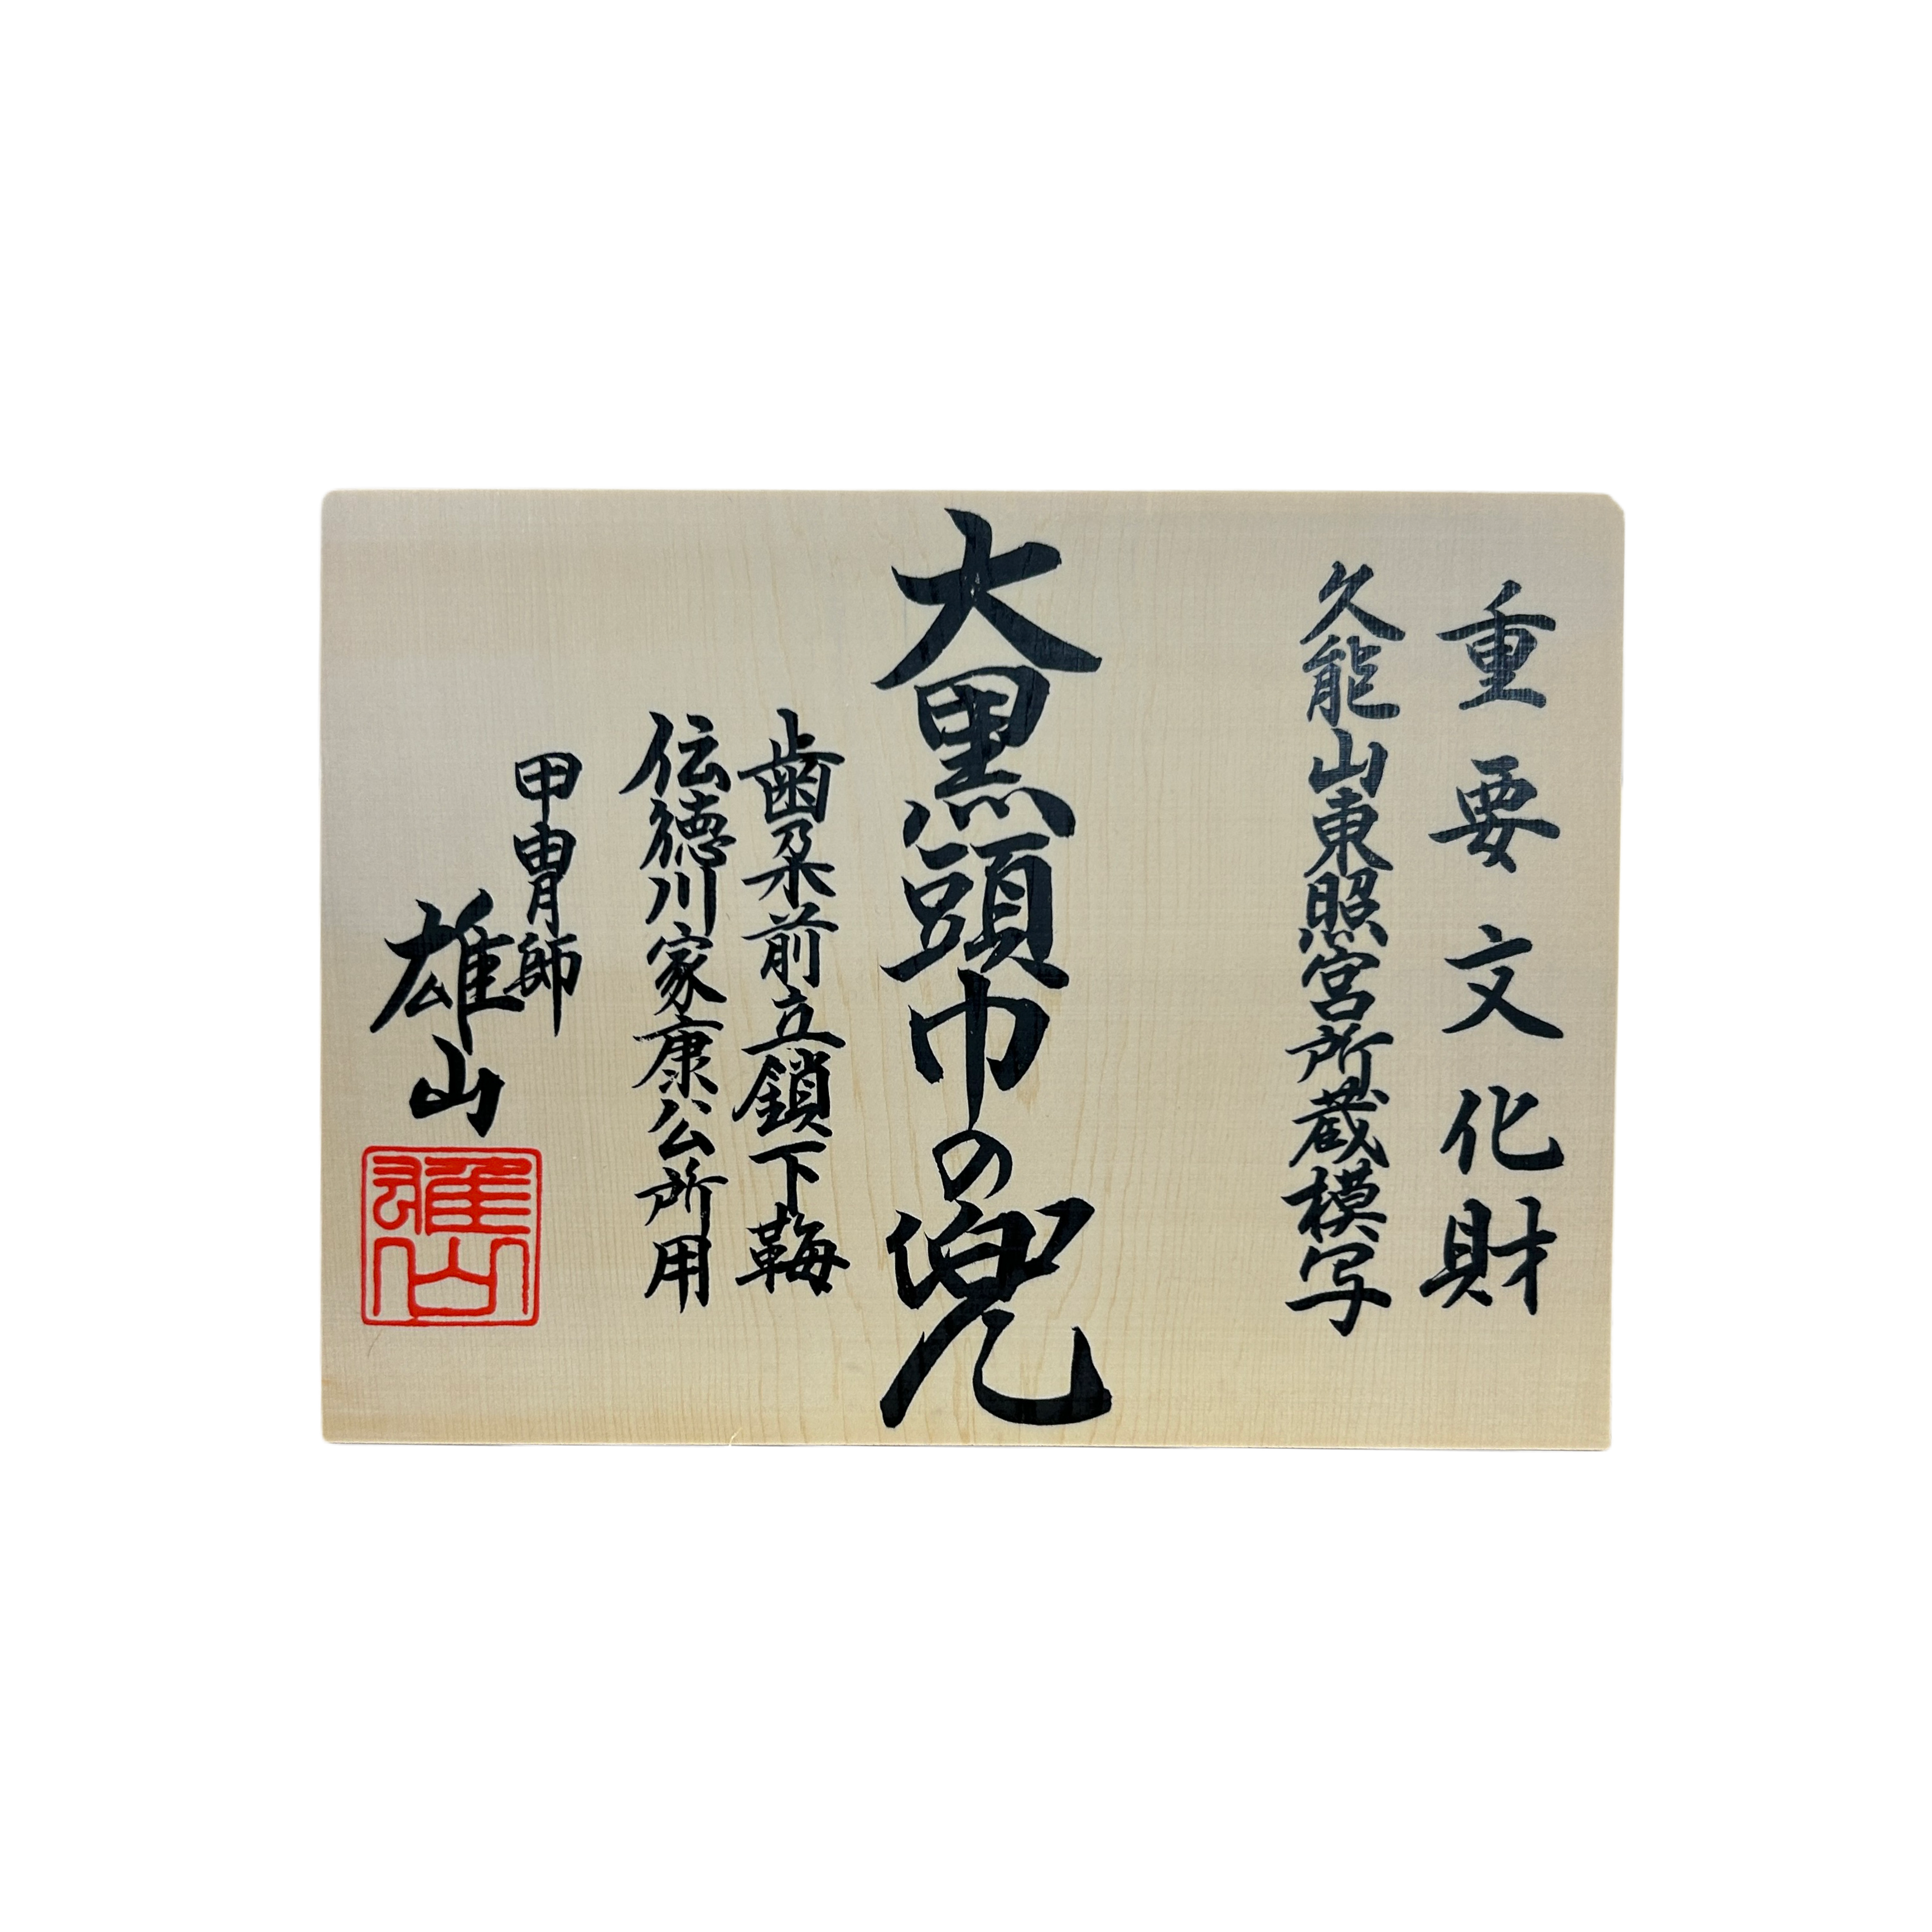 重要文化財
久能山東照宮所蔵模写
大黒頭巾の兜
歯朶前立鎖下鞴
伝徳川家康公所用
甲冑師
雄山
雄山